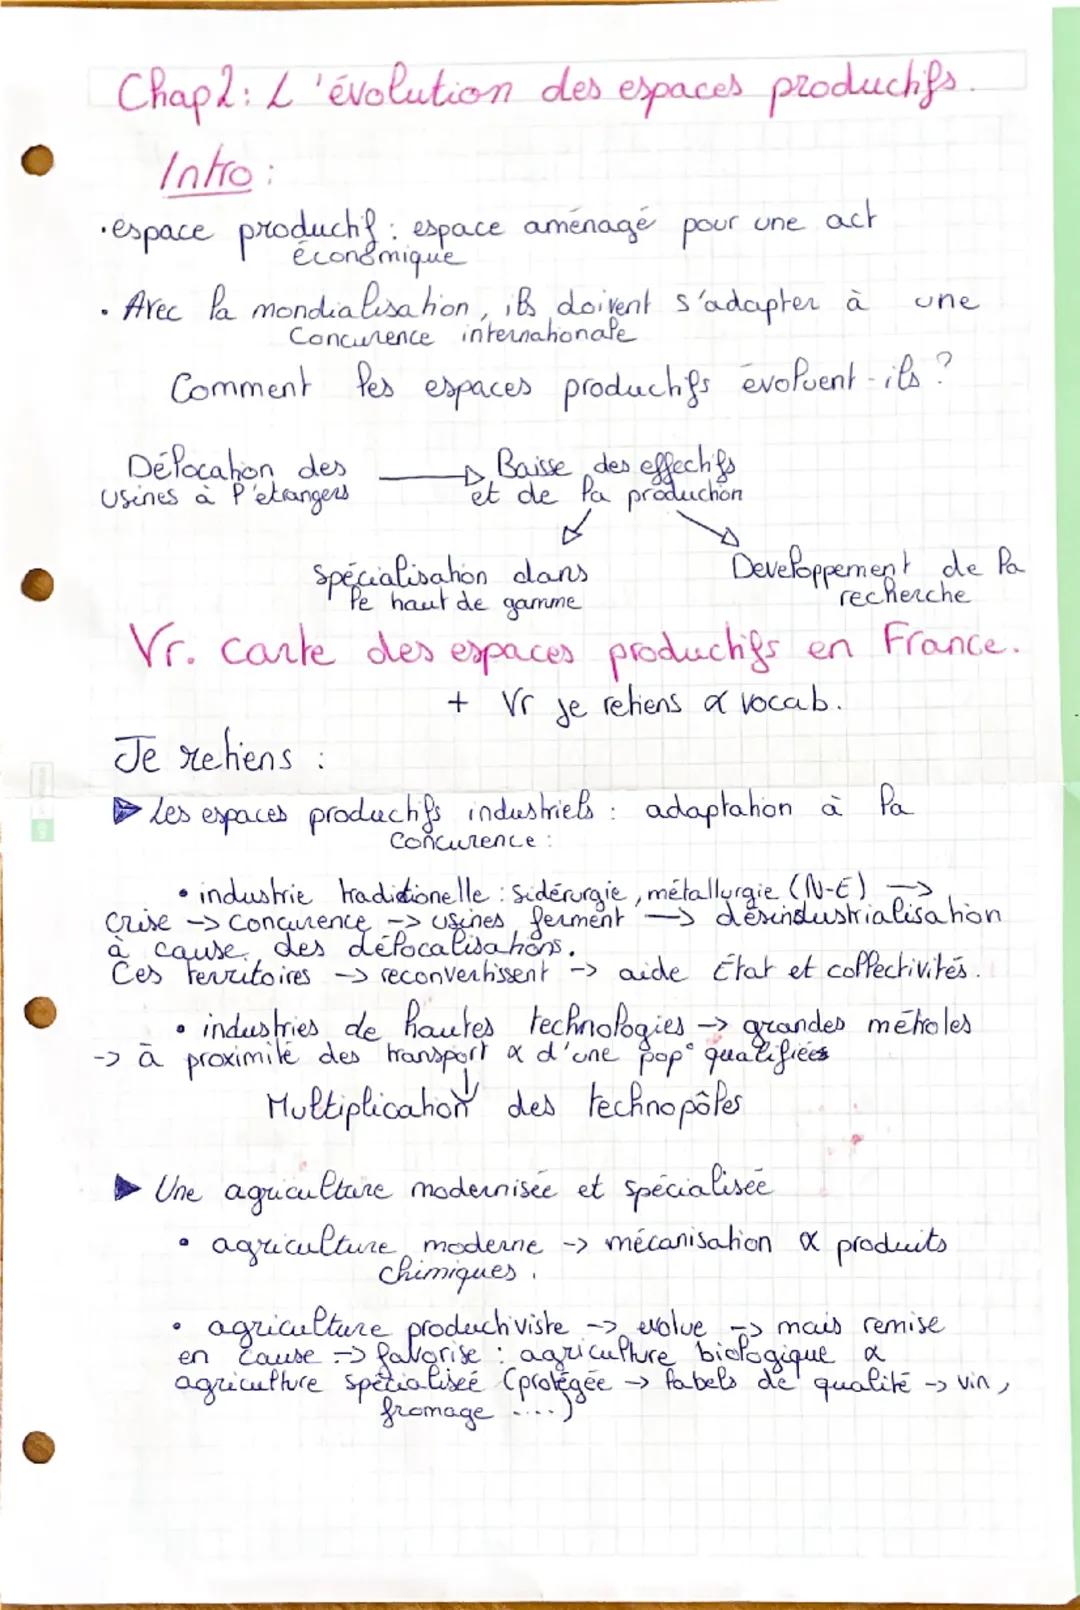 Chap2: L'évolution des espaces productifs.
Intro :
· espace productif : espace aménagé pour une act
économique
· Avec la mondialisation, ils doivent s'adapter à une
Concurence internationale
Comment les espaces productifs évoluent-ils ?
Délocation des → Baisse des effectifs
usines à l'étrangers et de la production
Spécialisation dans Developpement de la
le haut de gamme recherche
Vr. carte des espaces productifs en France.
+ Vr je retiens & vocab.
Je retiens :
▶ Les espaces productifs industriels : adaptation à la
Concurence :
• industrie traditionelle : Sidérurgie, métallurgie (N-E) →
Crise → Concurence → usines ferment → désindustrialisation
à cause des délocalisations.
Ces territoires → reconvertissent → aide État et collectivités.
• industries de hautes technologies → grandes métroles
→ à proximité des transport & d'une pop° qualifiées
↓
Multiplication des technopôles
▶ Une agriculture modernisée et spécialisée
• agriculture moderne → mécanisation & produits
chimiques.
• agriculture productiviste → evolue → mais remise
en cause → favorise : agriculture biologique &
agriculture spécialisée (protégée → labels de qualité → vin,
fromage ....)